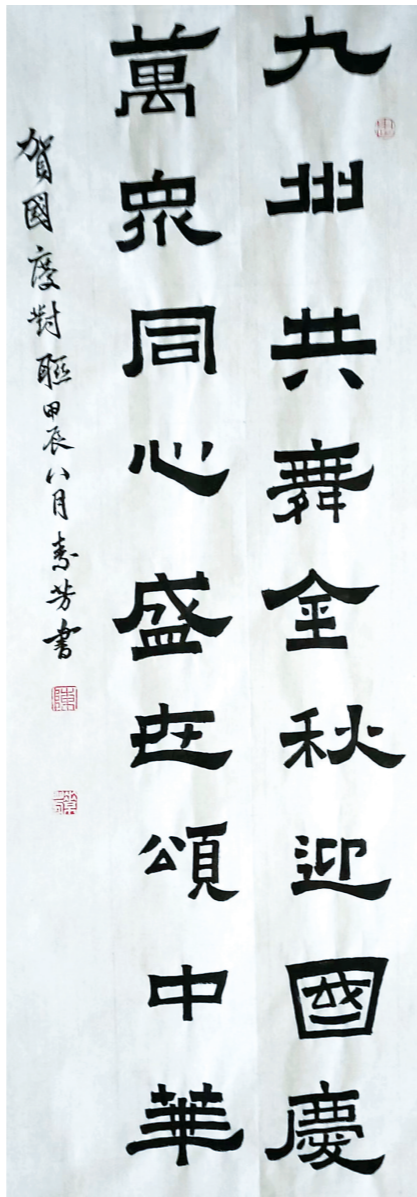 九州共舞金秋迎國慶
萬眾同心盛世頌中華
賀國慶對聯甲辰八月素芳書